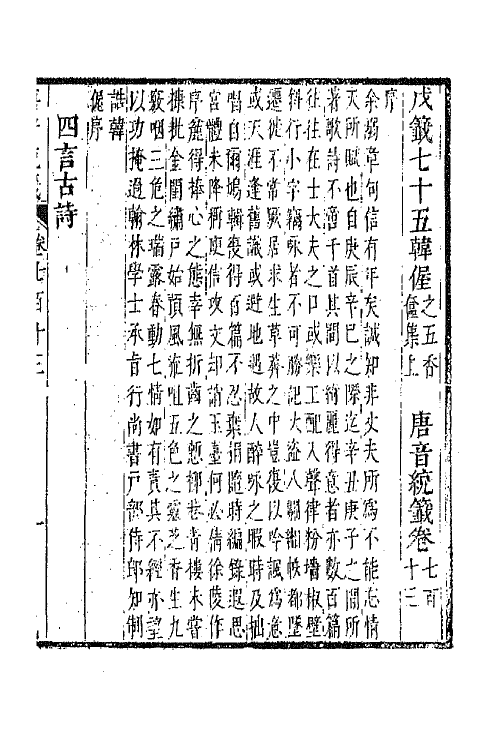 戊籤七十五韓偓之五香奩集上　唐音統籤卷七百十三
序
余溺章句信有年矣誠知非丈夫所為不能忘情
天所賦也自庚辰辛巳之際迄辛丑庚子之間所
著歌詩不啻千首其間以綺麗得意者亦數百篇
往往在士大夫之口或樂工配入聲律粉墻椒壁
斜行小字竊咏者不可勝記大盜入關緗帙都墜
遷徙不常厥居求生草莽之中豈復以吟諷為意
或天涯逢舊識或避地遇故人醉咏之暇時及拙
唱自爾鳩輯復得百篇不忍棄捐隨時編錄遐思
宮體未降稱庾信攻文却誚玉臺何必倩徐陵作
序麄得捧心之態幸無折齒之慙柳巷青樓未嘗
糠粃金閨繡戶始預風流咀五色之靈芝香生九
竅咽三危之瑞露春動七情如有責其不經亦望
以功掩過翰林學士承旨行尚書戶部侍郎知制
誥韓
偓序
四言古詩
卷七百十三
一